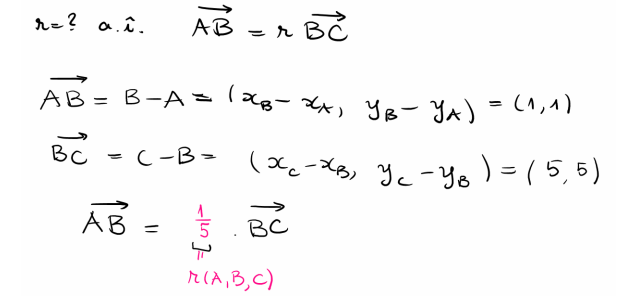 r=? a.î. $\overrightarrow{AB} = r \overrightarrow{BC}$
$\overrightarrow{AB} = B - A = (x_B - x_A, y_B - y_A) = (1, 1)$
$\overrightarrow{BC} = C - B = (x_C - x_B, y_C - y_B) = (5, 5)$
$\overrightarrow{AB} = \frac{1}{5} \cdot \overrightarrow{BC}$
=
r(A,B,C)